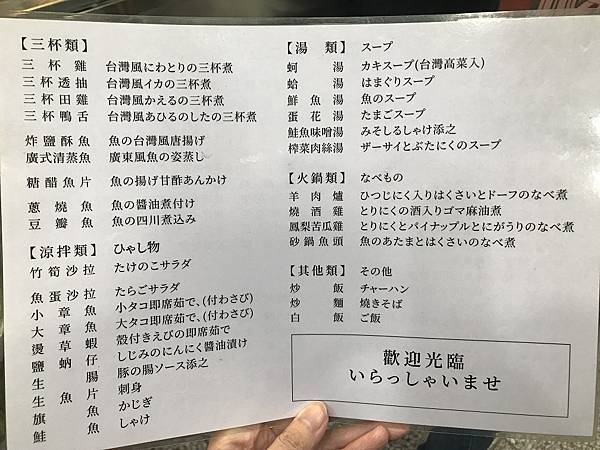 【三杯類】
三杯雞 台灣風にわとりの三杯煮
三杯透抽 台灣風イカの三杯煮
三杯田雞 台灣風かえるの三杯煮
三杯鴨舌 台灣風あひるのしたの三杯煮
炸鹽酥魚 魚の台灣風唐揚げ
廣式清蒸魚 廣東風魚の姿蒸し
糖醋魚片 魚の揚げ甘酢あんかけ
蔥燒魚 魚の醬油煮付け
豆瓣魚 魚の四川煮込み
【涼拌類】ひゃし物
竹筍沙拉 たけのこサラダ
魚蛋沙拉 たらごサラダ
小章魚 小タコ即席茹で、(付わさび)
大章魚 大タコ即席茹で、(付わさび)
燙草蝦 殼付きえびの即席茹で
鹽蚋仔 しじみのにんにく醬油漬け
生腸 豚の腸ソース添之
生魚片 刺身
旗魚 かじぎ
鮭魚 しゃけ
【湯類】スープ
蚵湯 カキスープ(台灣高菜入)
蛤湯 はまぐりスープ
鮮魚湯 魚のスープ
蛋花湯 たまごスープ
鮭魚味噌湯 みそしるしゃけ添之
榨菜肉絲湯 ザーサイとぶたにくのスープ
【火鍋類】なべもの
羊肉爐 ひつじにく入りはくさいとドーフのなべ煮
燒酒雞 とりにくの酒入りゴマ麻油煮
鳳梨苦瓜雞 とりにくとパイナップルとにがうりのなべ煮
砂鍋魚頭 魚のあたまとはくさいのなべ煮
【其他類】その他
炒飯 チャーハン
炒麵 燒きそば
白飯 ご飯
歡迎光臨
いらっしゃいませ